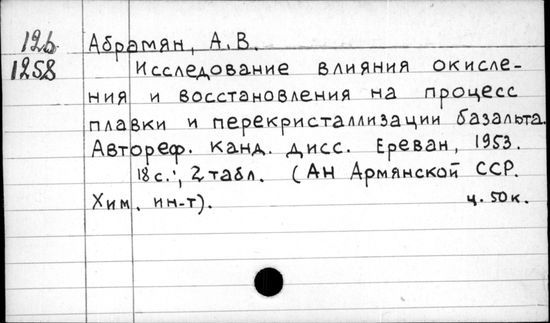 12б Абрамян, А.В.
1258 Исследование влияния окисле-
ния и восстановления на процесс
плавки и перекристаллизации базальта.
Автореф. канд. дисс. Ереван, 1953.
18 с.; 2 табл. (АН Армянской ССР.
Хим. ин-т). ц. 50 к.